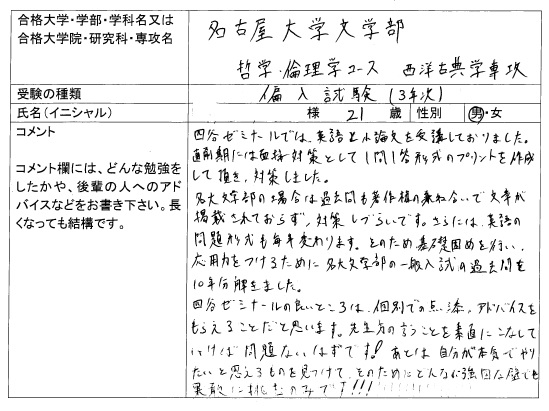 合格大学・学部・学科名又は
合格大学院・研究科・専攻名
名古屋大学文学部
哲学・倫理学コース 西洋古典学専攻
受験の種類
偏入試験(3年次)
氏名(イニシャル)
様 21 歳 性別 男・女
コメント
コメント欄には、どんな勉強を
したかや、後輩の人へのアド
バイスなどをお書き下さい。長
くなっても結構です。
四谷ゼミナールでは、英語と小論文を受講しておりました。
直前期には面接対策として1問1答形式のプリントを作成
して頂き、対策しました。
名大文学部の場合は過去問も著作権の兼ね合いで文章が
掲載されておらず、対策しづらいです。さらには、英語の
問題形式も毎年変わります。そのため基礎固めを行い、
応用力をつけるために名大文学部の一般入試の過去問を
10年分解きました。
四谷ゼミナールの良いところは、個別での点・添、アドバイスを
もらえることだと思います。先生方の言うことを素直にこなして
いけば問題ないはずです!あとは自分が本気でやり
たいと思えるものを見つけて、そのためにどんな強固な壁でも
果敢に挑むのみです!!!